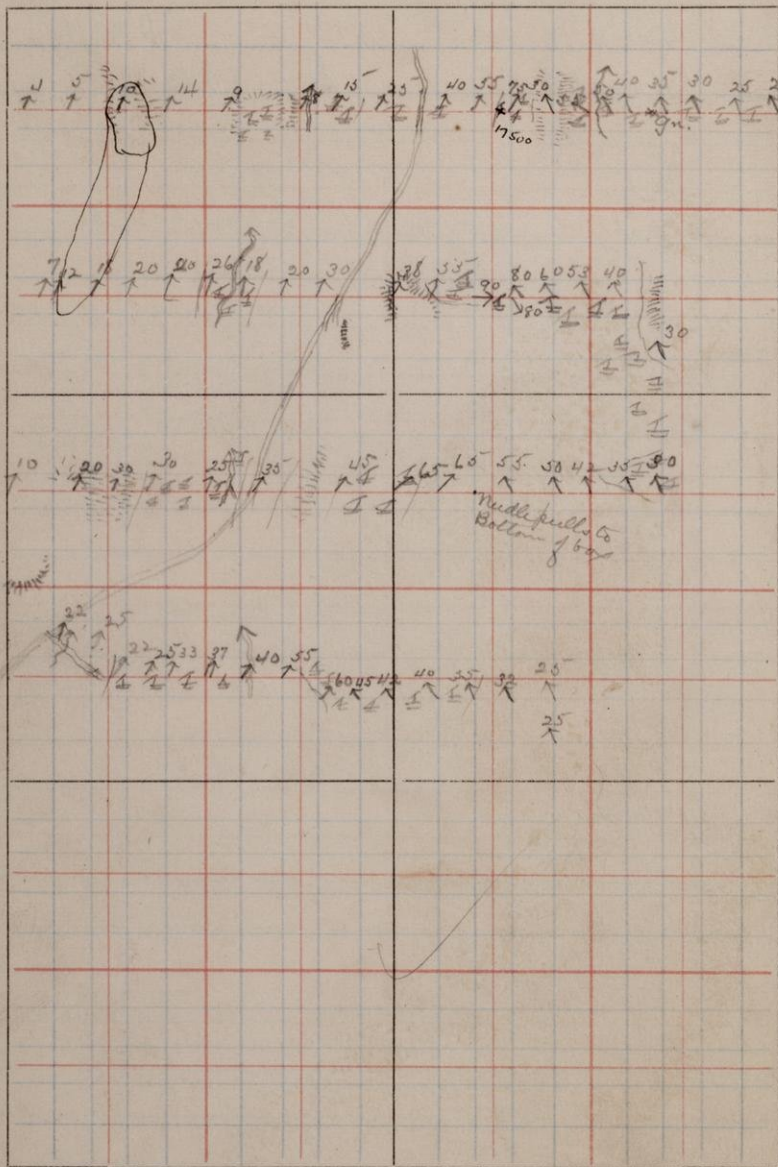 4 5 10 14 9 18 15 25 40 55 75 50 50 40 35 30 25
17500
gn.
7 12 15 20 20 26 18 20 30 38 55 90 80 60 53 40
80
30
10 20 30 30 25 35 45 65 65 55 50 42 35 30
Needle pulls to
Bottom of box
22 25
22 25 33 37 40 55
60 45 42 40 35 32 25
25